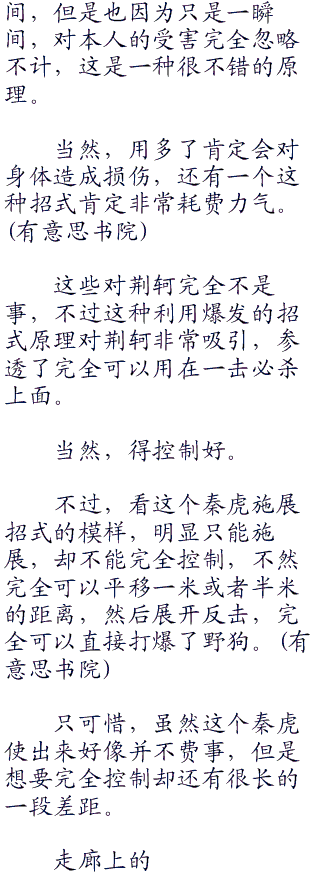 间，但是也因为只是一瞬
间，对本人的受害完全忽略
不计，这是一种很不错的原
理。
当然，用多了肯定会对
身体造成损伤，还有一个这
种招式肯定非常耗费力气。
(有意思书院)
这些对荆轲完全不是
事，不过这种利用爆发的招
式原理对荆轲非常吸引，参
透了完全可以用在一击必杀
上面。
当然，得控制好。
不过，看这个秦虎施展
招式的模样，明显只能施
展，却不能完全控制，不然
完全可以平移一米或者半米
的距离，然后展开反击，完
全可以直接打爆了野狗。(有
意思书院)
只可惜，虽然这个秦虎
使出来好像并不费事，但是
想要完全控制却还有很长的
一段差距。
走廊上的